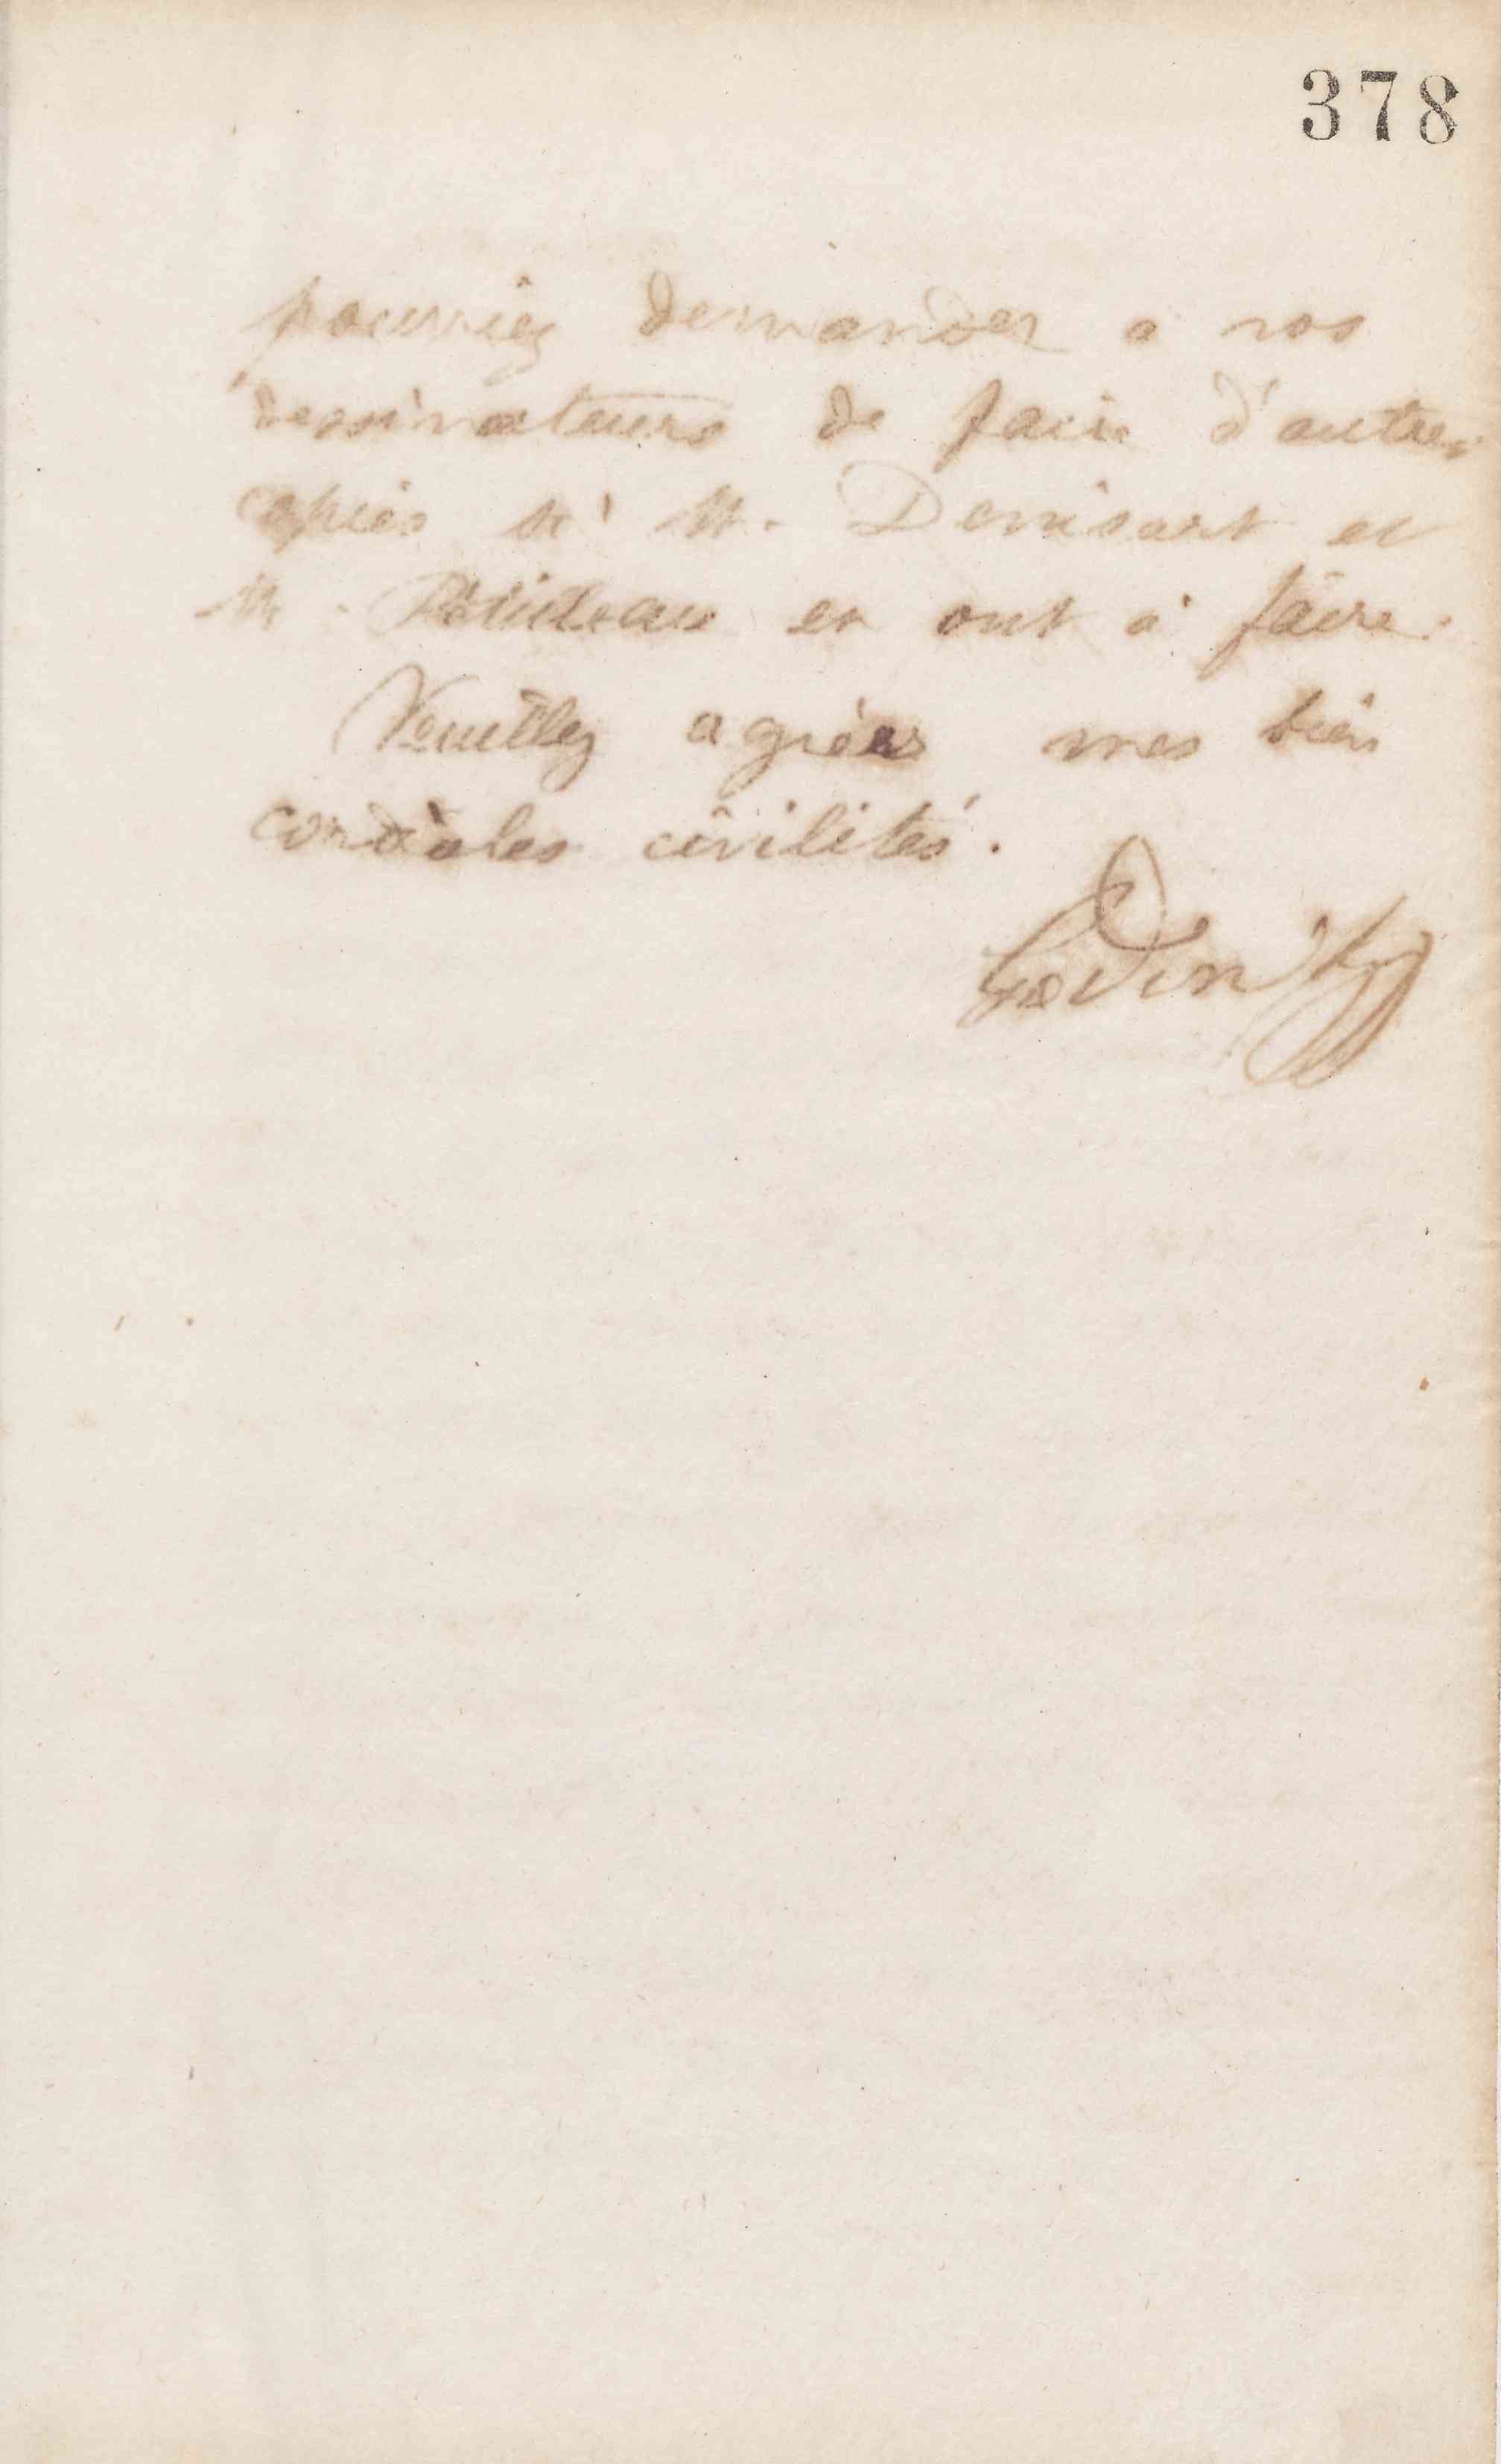 378
pourriez demander a nos
dessinateurs de faire d'autres
copies si M. Denisart et
M. en ont à faire.
Veuillez agréer mes bien
cordiales civilités.
Godin